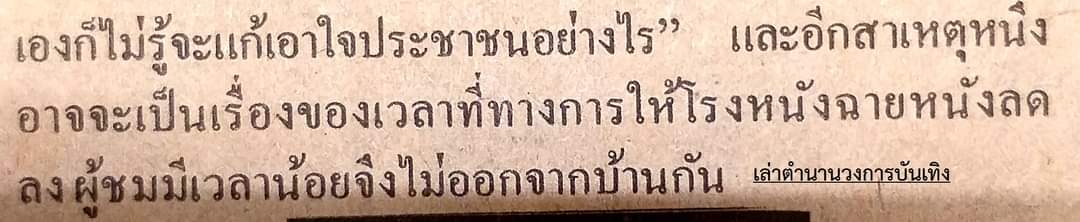 เองก็ไม่รู้จะแก้เอาใจประชาชนอย่างไร” และอีกสาเหตุหนึ่ง
อาจจะเป็นเรื่องของเวลาที่ทางการให้โรงหนังฉายหนังลด
ลง ผู้ชมมีเวลาน้อยจึงไม่ออกจากบ้านกัน เล่าตำนานวงการบันเทิง